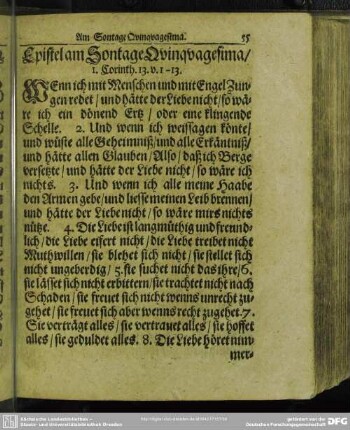 Am Sontage Qvinqvagesima. 55
Epistel am Sontage Qvinqvagesima/
1. Corinth. 13. v. 1-13.
WEnn ich mit Menschen und mit Engel Zun-
gen redet/ und hätte der Liebe nicht/ so wä-
re ich ein dönend Ertz/ oder eine klingende
Schelle. 2. Und wenn ich weissagen könte/
und wüste alle Geheimniß/ und alle Erkäntniß/
und hätte allen Glauben/ Also/ daß ich Berge
versetzte/ und hätte der Liebe nicht/ so wäre ich
nichts. 3. Und wenn ich alle meine Haabe
den Armen gebe/ und liesse meinen Leib brennen/
und hätte der Liebe nicht/ so wäre mirs nichts
nütze. 4. Die Liebe ist langmüthig und freund-
lich/ die Liebe eifert nicht/ die Liebe treibet nicht
Muthwillen/ sie blehet sich nicht/ sie stellet sich
nicht ungeberdig/ 5. sie suchet nicht das ihre/ 6.
sie lässet sich nicht erbittern/ sie trachtet nicht nach
Schaden/ sie freuet sich nicht wenns unrecht zu-
gehet/ sie freuet sich aber wenns recht zugehet. 7.
Sie verträgt alles/ sie vertrauet alles/ sie hoffet
alles/ sie geduldet alles. 8. Die Liebe höret nim
mer-
Sächsische Landesbibliothek -
Staats- und Universitätsbibliothek Dresden
gefördert von der
Deutschen Forschungsgemeinschaft
DFG